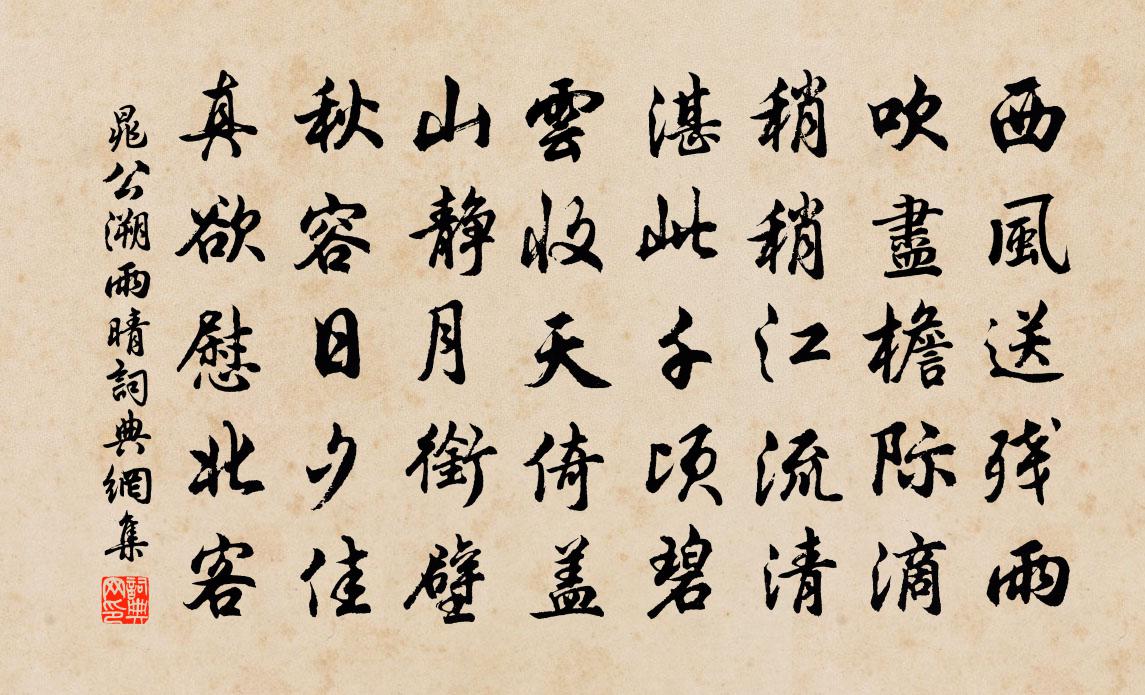 西風送残雨
吹盡檐际滴
稍稍江流清
湛此千顷碧
雲收天倚盖
山静月銜壁
秋容日夕佳
真欲慰北客
晁公溯雨晴詞典網集
詞典网印